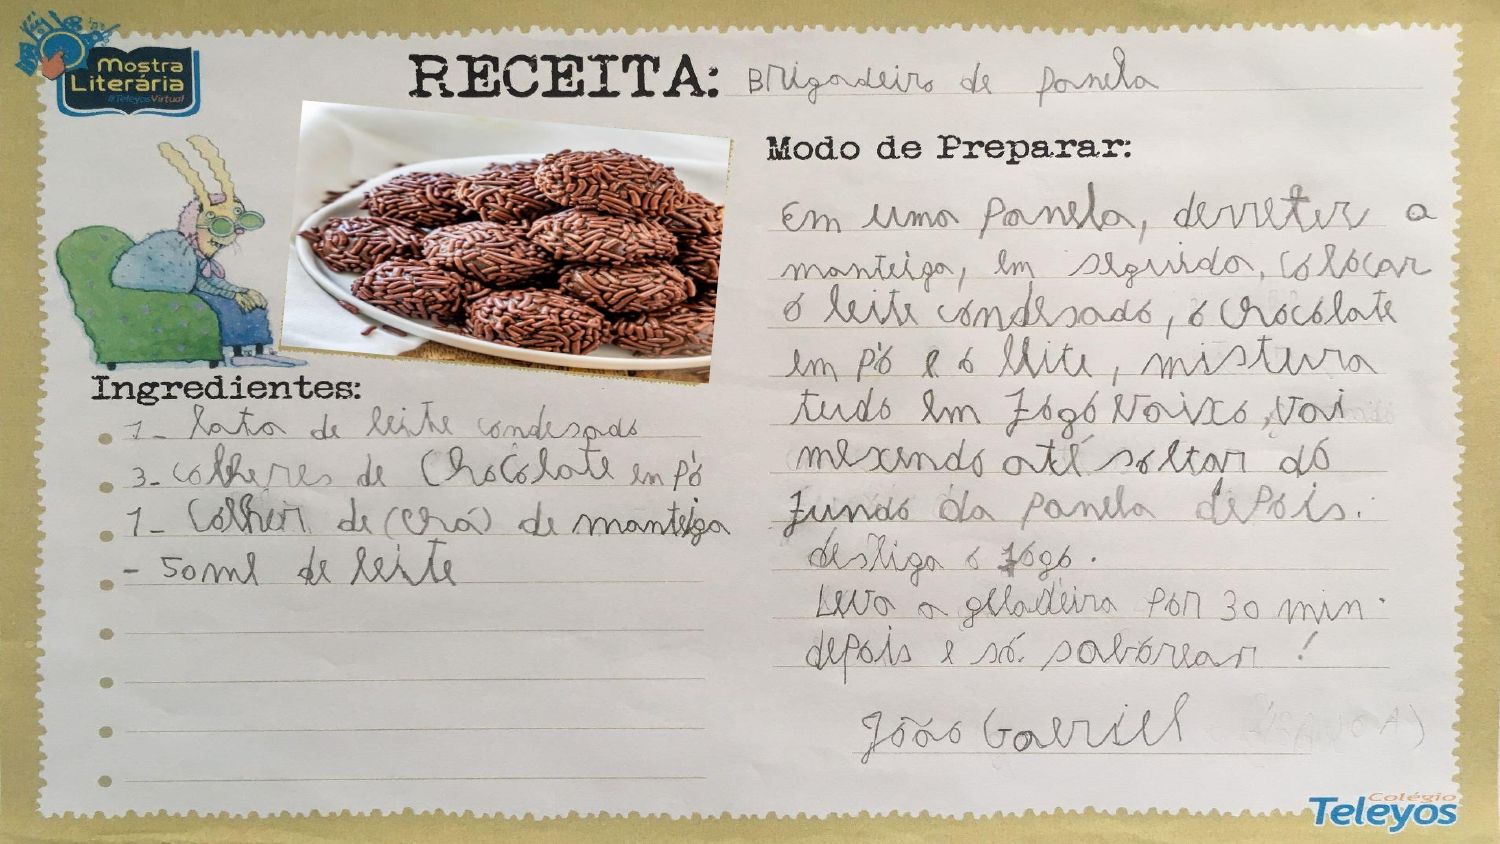 Mostra
Literária
#TeleyosVirtual
RECEITA: Brigadeiro de panela
Ingredientes:
1- lata de leite condesado
3- colheres de Chocolate em pó
1- Colher de (chá) de manteiga
- 50 ml de leite
Modo de Preparar:
Em uma panela, derreter a
manteiga, em seguida, colocar
o leite condesado, o chocolate
em pó e o leite, mistura
tudo em fogo baixo, vai
mexendo até soltar do
fundo da panela depois.
desliga o fogo.
Leva a geladeira por 30 min.
depois é só saborear!
João Gabriel
Colégio
Teleyos